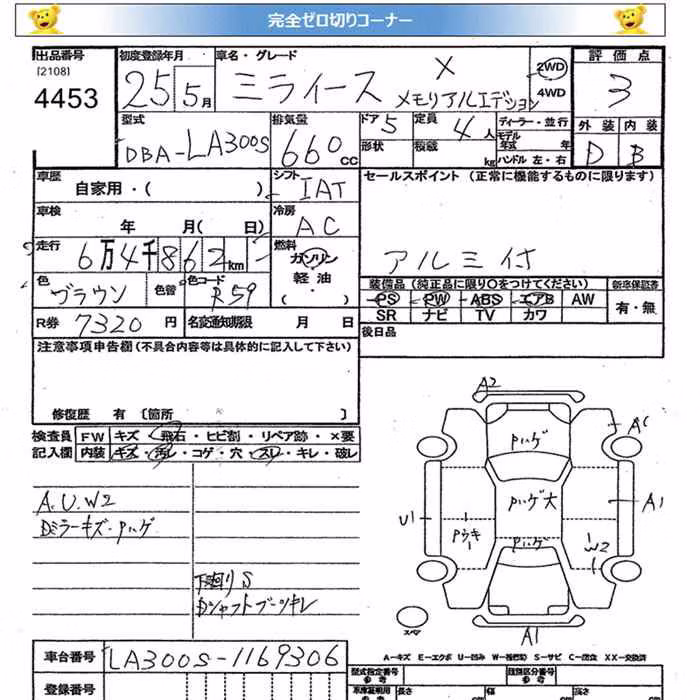 完全ゼロ切りコーナー
出品番号 (2108) 4453
初度登録年月 25 5月
車名・グレード ミライース X メモリアルエディション
2WD
4WD
評価点 3
型式 DBA-LA300S
排気量 660cc
ドア 5
形状
定員 4人
積載 kg
ディーラー・並行
モデル年式 年
ハンドル 左・右
外装 D
内装 B
車歴 自家用・( )
シフト IAT
セールスポイント (正常に機能するものに限ります)
アルミ付
車検 年 月( 日)
冷房 AC
走行 6万4千862km
燃料 ガソリン・軽油・
色 ブラウン
色替
色コード R59
装備品 (純正品に限り○をつけてください)
PS PW ABS エアB AW
SR ナビ TV カワ
新車保証書
有・無
R券 7320円
名変通知期限 月 日
後日品
注意事項申告欄(不具合内容等は具体的に記入して下さい)
修復歴 有 [箇所 ]
検査員記入欄
FW キズ・飛石・ヒビ割・リペア跡・×要
内装 キズ・汚レ・コゲ・穴・スレ・キレ・破レ
A.U.W2
Dミラーキズ・Pハゲ
下廻りS
Dシャフトブーツキレ
A2
Pハゲ
AC
Pハゲ大
A1
U1
Pウキ
Pハゲ
W2
スペア
A1
A−キズ E−エクボ U−凹み W−補修跡 S−サビ C−腐食 XX−交換済
車台番号 LA300S-1169306
登録番号
型式指定番号 参考
種別区分番号 参考
車庫証明用 参考
長さ cm
幅 cm
高さ cm